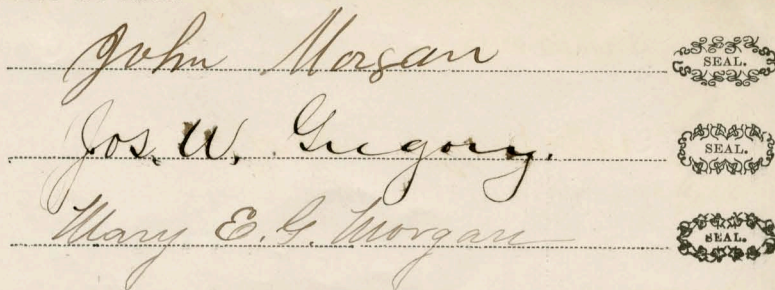 John Morgan SEAL.
Jos. W. Gregory. SEAL.
Mary E. G. Morgan SEAL.